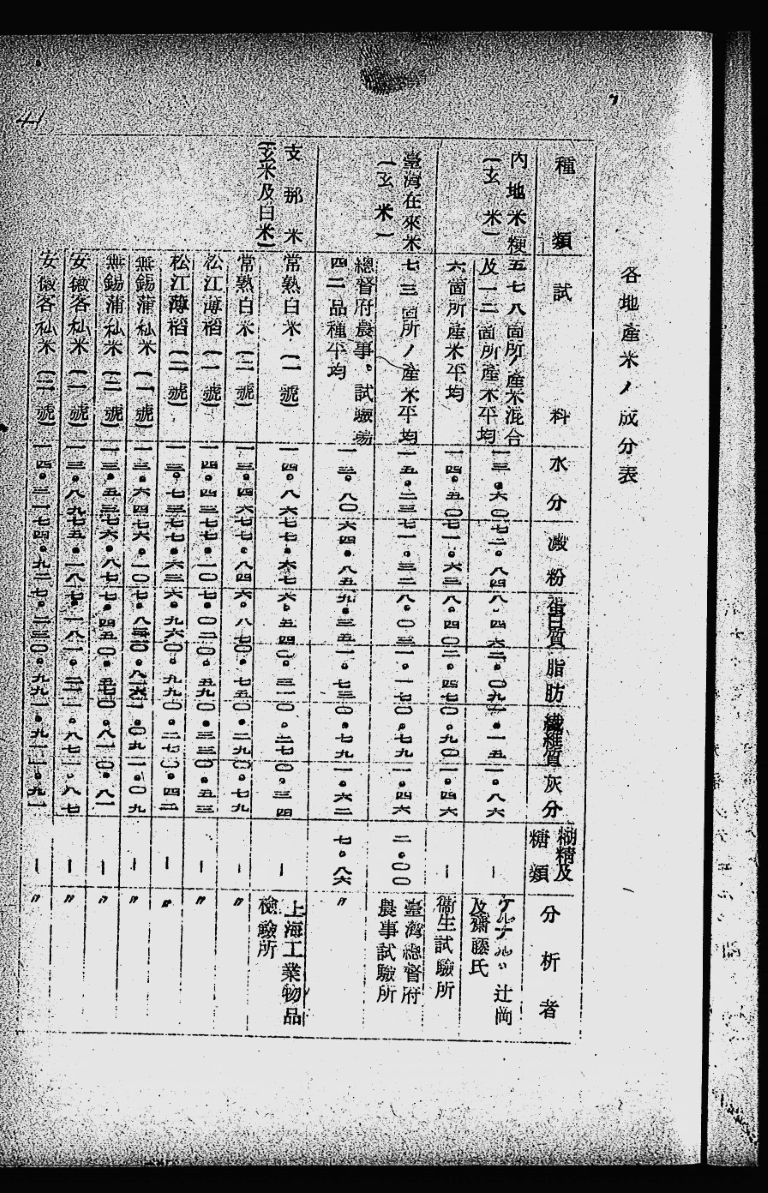 各地產米ノ成分表
種類 試料 水分 澱粉 蛋白質 脂肪 纖維質 灰分 糊精及糖類 分析者
內地米粳(玄米) 五七八箇所ノ產米混合及一二箇所產米平均 一三。六〇 七二。八四 八。四六 二。〇九 一。一五 一。八六 ー 辻岡及齋藤氏
六箇所產米平均 一四。五〇 七一。六三 八。四〇 二。四七 〇。九〇 一。四六 ー 衞生試驗所
臺灣在來米(玄米) 七三箇所ノ產米平均 一五。二三 七一。三二 八。〇三 一。一七 〇。七九 一。四六 二。〇〇 臺灣總督府農事試驗所
總督府農事試驗場四二品種平均 一三。八〇 六四。八五 九。三五 一。七三 〇。七九 一。六二 七。八六 〃
支那米(玄米及白米) 常熟白米(一號) 一四。八六 七七。六七 六。五四 〇。三一 〇。二七 〇。三四 ー 上海工業物品檢驗所
常熟白米(二號) 一三。四六 七七。八四 六。八七 〇。七五 〇。二九 〇。七九 ー 〃
松江薄稻(一號) 一四。四三 七七。一〇 七。〇二 〇。五九 〇。三三 〇。五三 ー 〃
松江薄稻(二號) 一三。七三 七七。六三 六。九六 〇。九九 〇。二七 〇。四二 ー 〃
無錫蒲籼米(一號) 一三。六四 七六。一〇 一。〇九 ー 〃
無錫蒲籼米(二號) 一三。五三 七六。八七 七。四五 〇。八一 ー 〃
安徽客籼米(一號) 一三。八九 七五。一八 七。一八 一。八七 ー 〃
安徽客籼米(二號) 一四。三一 七四。九二 七。二三 〇。九九 一。九一 ー 〃
41